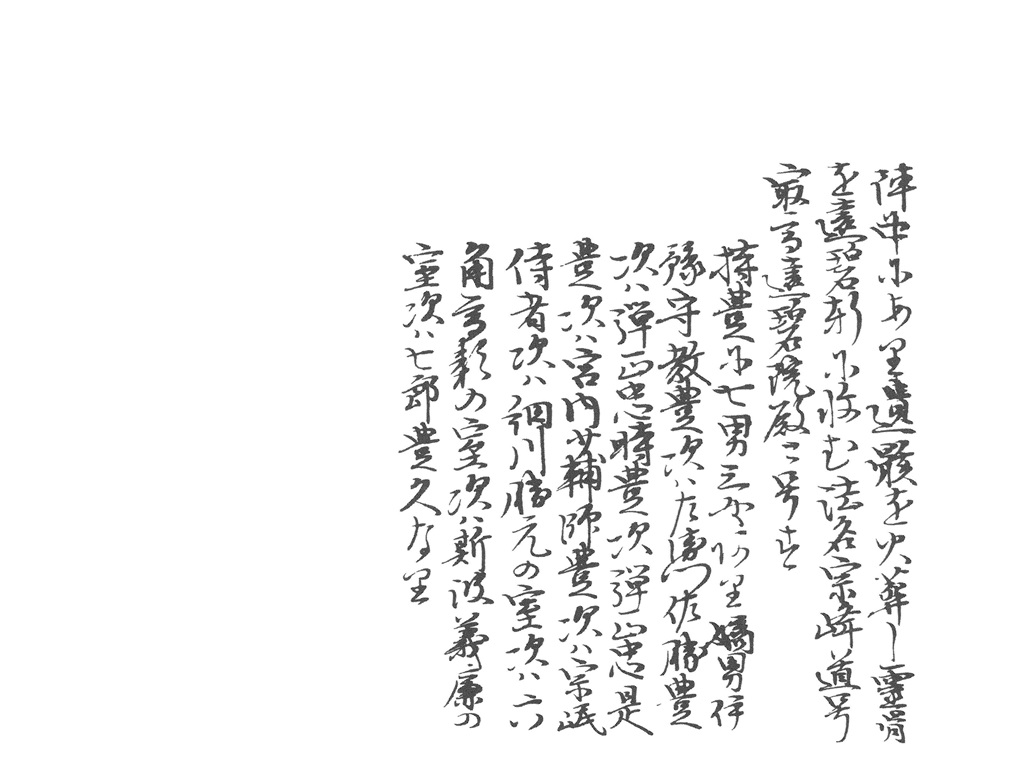 陣中にあり遺骸を火葬し霊骨
を遠碧軒に收む法名宗峰道号
最高遠碧院殿と号す
持豊に七男三女あり嫡男伊
豫守教豊次ハ左衛門佐勝豊
次ハ弾正忠時豊次弾正忠是
豊次ハ宮内少輔師豊次ハ宗峴
侍者次ハ細川勝元の室次ハ六
角高頼の室次ハ斯波義廉の
室次ハ七郎豊久なり